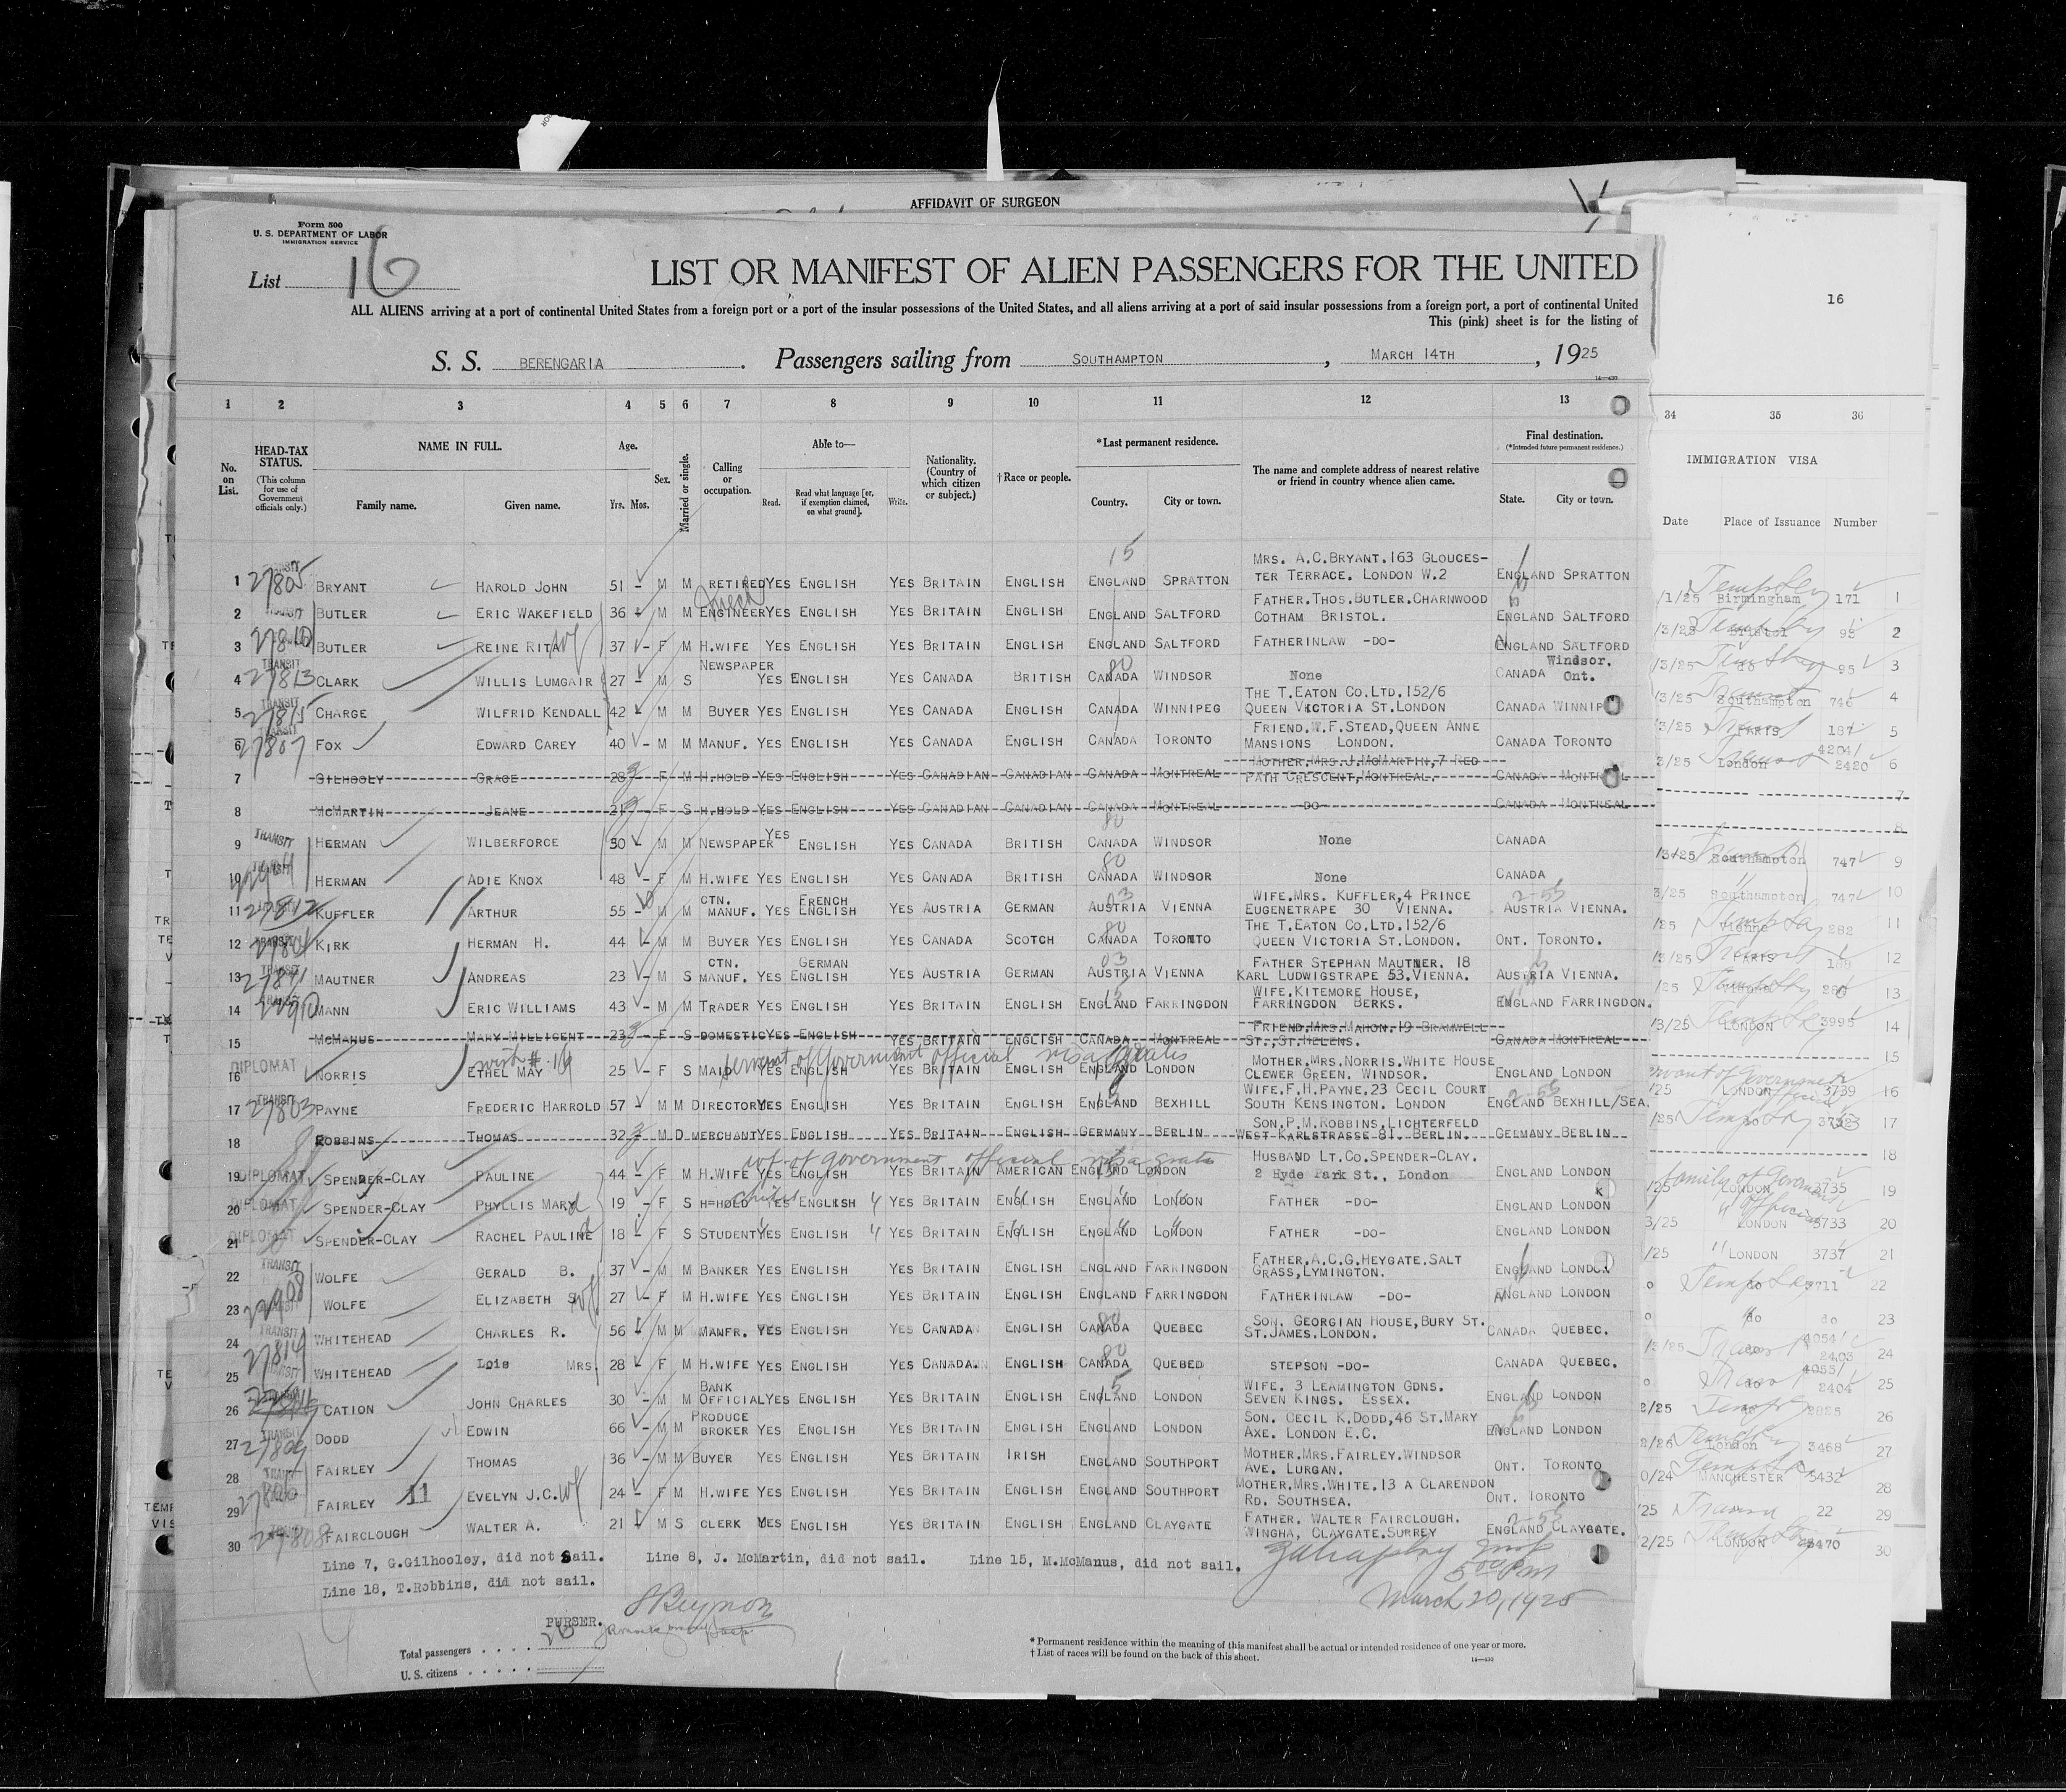 AFFIDAVIT OF SURGEON
Form 500
U. S. DEPARTMENT OF LABOR
IMMIGRATION SERVICE
List 16
LIST OR MANIFEST OF ALIEN PASSENGERS FOR THE UNITED
ALL ALIENS arriving at a port of continental United States from a foreign port or a port of the insular possessions of the United States, and all aliens arriving at a port of said insular possessions from a foreign port, a port of continental United
This (pink) sheet is for the listing of
16
S. S. BERENGARIA. Passengers sailing from SOUTHAMPTON, MARCH 14TH, 1925
1 2 3 4 5 6 7 8 9 10 11 12 13 34 35 36
No. on List. HEAD-TAX STATUS. (This column for use of Government officials only.) NAME IN FULL. Family name. Given name. Age. Yrs. Mos. Sex. Married or single. Calling or occupation. Able to— Read. Read what language [or, if exemption claimed, on what ground]. Write. Nationality. (Country of which citizen or subject.) †Race or people. *Last permanent residence. Country. City or town. The name and complete address of nearest relative or friend in country whence alien came. Final destination. (*Intended future permanent residence.) State. City or town. IMMIGRATION VISA Date Place of Issuance Number
1 TRANSIT 27805 BRYANT HAROLD JOHN 51 - M M RETIRED YES ENGLISH YES BRITAIN ENGLISH ENGLAND SPRATTON MRS. A.C.BRYANT.163 GLOUCES-TER TERRACE. LONDON W.2 ENGLAND SPRATTON /1/25 Birmingham 171 1
2 BUTLER ERIC WAKEFIELD 36 - M M ENGINEER YES ENGLISH YES BRITAIN ENGLISH ENGLAND SALTFORD FATHER.THOS.BUTLER.CHARNWOOD COTHAM BRISTOL. ENGLAND SALTFORD /3/25 Bristol 2
3 BUTLER REINE RITA wf 37 - F M H.WIFE YES ENGLISH YES BRITAIN ENGLISH ENGLAND SALTFORD FATHERINLAW -DO- ENGLAND SALTFORD /3/25 do 95 3
4 TRANSIT 27813 CLARK WILLIS LUMGAIR 27 - M S NEWSPAPER YES ENGLISH YES CANADA BRITISH CANADA WINDSOR None CANADA Windsor. Ont. /3/25 Southampton 746 4
5 TRANSIT 27815 CHARGE WILFRID KENDALL 42 - M M BUYER YES ENGLISH YES CANADA ENGLISH CANADA WINNIPEG THE T.EATON CO.LTD.152/6 QUEEN VICTORIA ST.LONDON CANADA WINNIP /3/25 PARIS 187 5
6 TRANSIT 27807 FOX EDWARD CAREY 40 - M M MANUF. YES ENGLISH YES CANADA ENGLISH CANADA TORONTO FRIEND.W.F.STEAD,QUEEN ANNE MANSIONS LONDON. CANADA TORONTO /3/25 London 4204/ 2420 6
7 GILHOOLY GRACE 28 - F M H.HOLD YES ENGLISH YES CANADIAN CANADIAN CANADA MONTREAL MOTHER,MRS.J.MCMARTIN,7 RED PATH CRESCENT,MONTREAL. CANADA MONTREAL 7
8 MCMARTIN JEANE 21 - F S H.HOLD YES ENGLISH YES CANADIAN CANADIAN CANADA MONTREAL -DO- CANADA MONTREAL 8
9 TRANSIT HERMAN WILBERFORCE 50 - M M NEWSPAPER YES ENGLISH YES CANADA BRITISH CANADA WINDSOR None CANADA /3/25 Southampton 747 9
10 HERMAN ADIE KNOX 48 - F M H.WIFE YES ENGLISH YES CANADA BRITISH CANADA WINDSOR None CANADA 3/25 Southampton 747 10
11 27812 KUFFLER ARTHUR 55 - M M CTN. MANUF. YES FRENCH ENGLISH YES AUSTRIA GERMAN AUSTRIA VIENNA WIFE.MRS. KUFFLER,4 PRINCE EUGENETRAPE 30 VIENNA. AUSTRIA VIENNA. /25 Vienna 282 11
12 TRANSIT KIRK HERMAN H. 44 - M M BUYER YES ENGLISH YES CANADA SCOTCH CANADA TORONTO THE T.EATON CO.LTD.152/6 QUEEN VICTORIA ST.LONDON. ONT. TORONTO. /3/25 PARIS 12
13 TRANSIT MAUTNER ANDREAS 23 - M S CTN. MANUF. YES GERMAN ENGLISH YES AUSTRIA GERMAN AUSTRIA VIENNA FATHER STEPHAN MAUTNER. 18 KARL LUDWIGSTRAPE 53.VIENNA. AUSTRIA VIENNA. /25 13
14 TRANSIT MANN ERIC WILLIAMS 43 - M M TRADER YES ENGLISH YES BRITAIN ENGLISH ENGLAND FARRINGDON WIFE.KITEMORE HOUSE, FARRINGDON BERKS. ENGLAND FARRINGDON. /3/25 LONDON 3995 14
15 MCMANUS MARY MILLICENT 23 - F S DOMESTIC YES ENGLISH YES BRITAIN ENGLISH CANADA MONTREAL FRIEND,MRS.MAHON,19 BRAMWELL ST.,ST.HELENS. CANADA MONTREAL 15
servant of Government official visa gratis
16 DIPLOMAT NORRIS ETHEL MAY 25 - F S MAID YES ENGLISH YES BRITAIN ENGLISH ENGLAND LONDON MOTHER.MRS.NORRIS.WHITE HOUSE CLEWER GREEN. WINDSOR. ENGLAND LONDON /25 LONDON 3739 16
17 TRANSIT 27803 PAYNE FREDERIC HARROLD 57 - M M DIRECTOR YES ENGLISH YES BRITAIN ENGLISH ENGLAND BEXHILL WIFE.F.H.PAYNE,23 CECIL COURT SOUTH KENSINGTON. LONDON ENGLAND BEXHILL/SEA. /25 DO 17
18 ROBBINS THOMAS 32 - M D MERCHANT YES ENGLISH YES BRITAIN ENGLISH GERMANY BERLIN SON.P.M.ROBBINS,LICHTERFELD WEST KARLSTRASSE 81. BERLIN. GERMANY BERLIN 18
wf of government official visa gratis
19 DIPLOMAT SPENDER-CLAY PAULINE 44 - F M H.WIFE YES ENGLISH YES BRITAIN AMERICAN ENGLAND LONDON HUSBAND LT.CO.SPENDER-CLAY. 2 Hyde Park St., London ENGLAND LONDON /25 family of Government official LONDON 3735 19
20 DIPLOMAT SPENDER-CLAY PHYLLIS MARY 19 - F S H=HOLD YES ENGLISH YES BRITAIN ENGLISH ENGLAND LONDON FATHER -DO- ENGLAND LONDON 3/25 LONDON 3733 20
21 DIPLOMAT SPENDER-CLAY RACHEL PAULINE 18 - F S STUDENT YES ENGLISH YES BRITAIN ENGLISH ENGLAND LONDON FATHER -DO- ENGLAND LONDON /25 LONDON 3737 21
22 TRANSIT WOLFE GERALD B. 37 - M M BANKER YES ENGLISH YES BRITAIN ENGLISH ENGLAND FARRINGDON FATHER.A.C.G.HEYGATE.SALT GRASS,LYMINGTON. ENGLAND LONDON o do 3711 22
23 WOLFE ELIZABETH S wf 27 - F M H.WIFE YES ENGLISH YES BRITAIN ENGLISH ENGLAND FARRINGDON FATHERINLAW -DO- ENGLAND LONDON o do do 23
24 TRANSIT 27814 WHITEHEAD CHARLES R. 56 - M M MANFR. YES ENGLISH YES CANADA ENGLISH CANADA QUEBEC SON. GEORGIAN HOUSE,BURY ST. ST.JAMES.LONDON. CANADA QUEBEC. /3/25 4054/ 2403 24
25 TRANSIT WHITEHEAD Lois MRS. 28 - F M H.WIFE YES ENGLISH YES CANADA. ENGLISH CANADA QUEBED STEPSON -DO- CANADA QUEBEC. o do 4055/ 2404 25
26 CATION JOHN CHARLES 30 - M M BANK OFFICIAL YES ENGLISH YES BRITAIN ENGLISH ENGLAND LONDON WIFE. 3 LEAMINGTON GDNS. SEVEN KINGS. ESSEX. ENGLAND LONDON 2/25 26
27 TRANSIT 27809 DODD EDWIN 66 - M M PRODUCE BROKER YES ENGLISH YES BRITAIN ENGLISH ENGLAND LONDON SON. CECIL K.DODD,46 ST.MARY AXE. LONDON E.C. ENGLAND LONDON 2/25 London 3468 27
28 FAIRLEY THOMAS 36 - M M BUYER YES ENGLISH YES BRITAIN IRISH ENGLAND SOUTHPORT MOTHER.MRS.FAIRLEY.WINDSOR AVE. LURGAN. ONT. TORONTO 0/24 MANCHESTER 5432 28
29 FAIRLEY 11 EVELYN J.C. wf 24 - F M H.WIFE YES ENGLISH YES BRITAIN ENGLISH ENGLAND SOUTHPORT MOTHER.MRS.WHITE.13 A CLARENDON RD. SOUTHSEA. ONT. TORONTO /25 22 29
30 27808 FAIRCLOUGH WALTER A. 21 - M S CLERK YES ENGLISH YES BRITAIN ENGLISH ENGLAND CLAYGATE FATHER. WALTER FAIRCLOUGH. WINGHA, CLAYGATE.SURREY ENGLAND CLAYGATE. 2/25 LONDON 30
Line 7, G.Gilhooley, did not sail. Line 8, J. McMartin, did not sail. Line 15, M.McManus, did not sail.
Line 18, T.Robbins, did not sail.
5 00 PM
March 20, 1925
PURSER.
Total passengers 26
U. S. citizens
* Permanent residence within the meaning of this manifest shall be actual or intended residence of one year or more.
† List of races will be found on the back of this sheet.
14—430